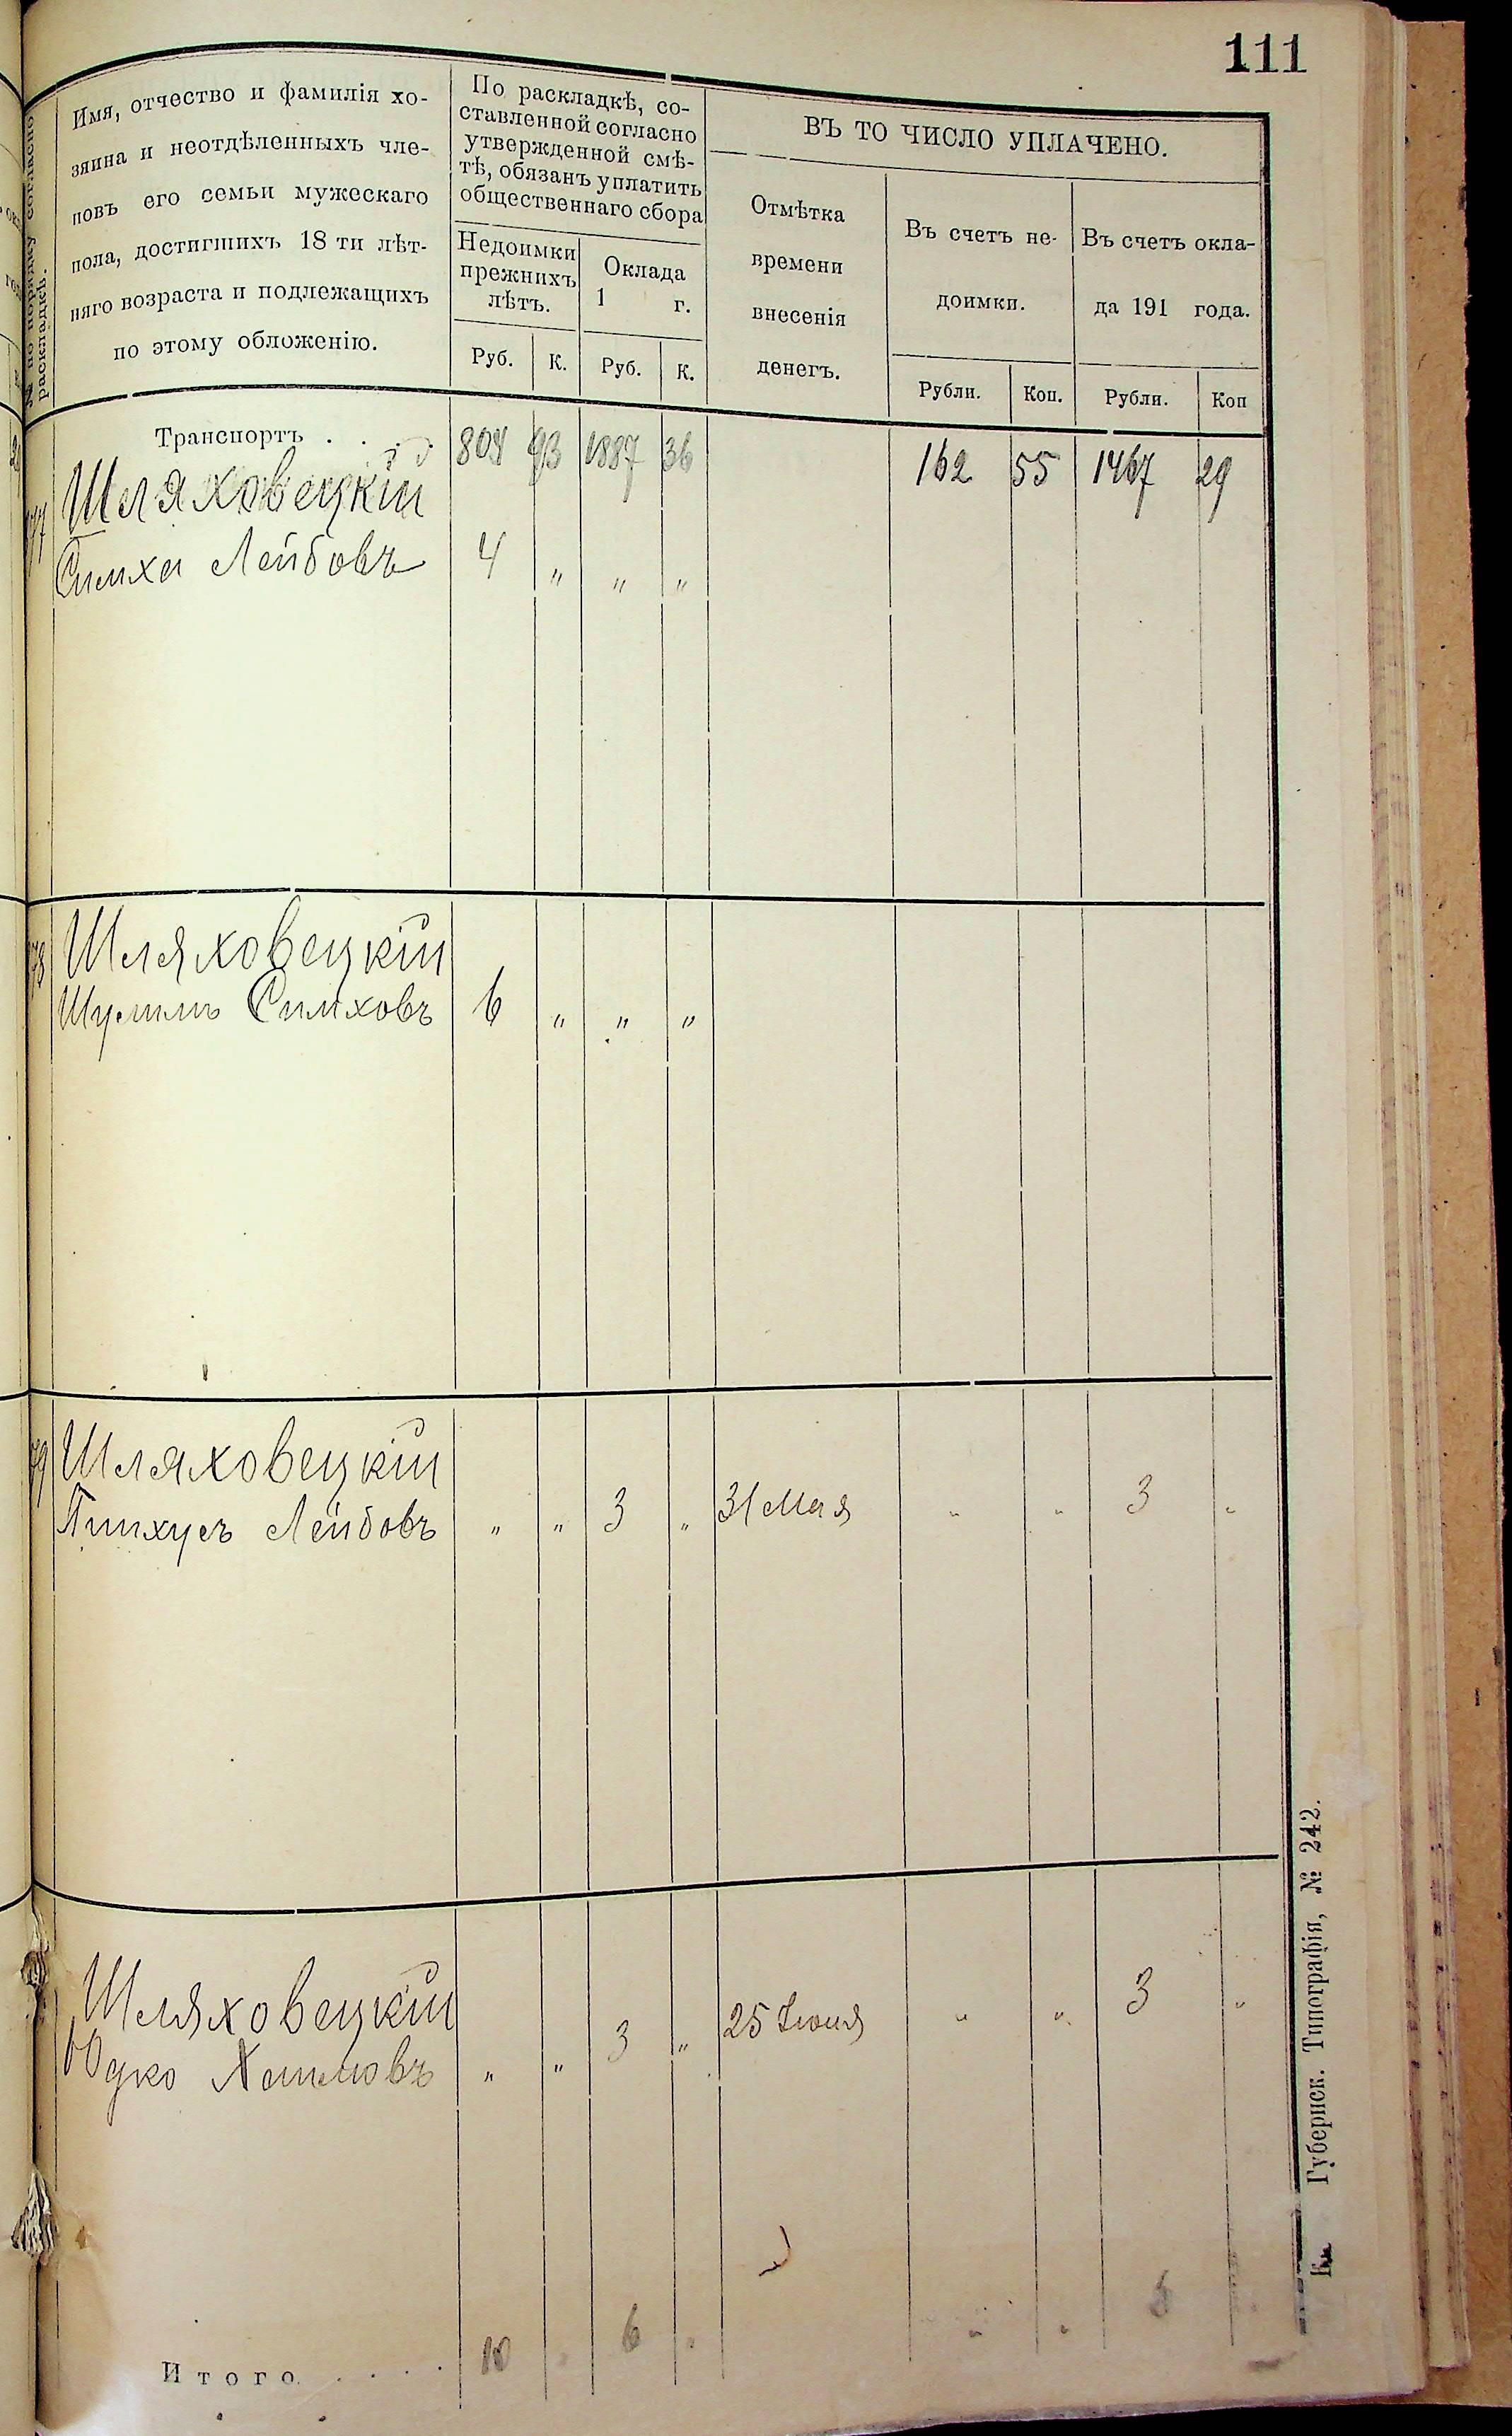 111
№ по порядку согласно
раскладкѣ.
Имя, отчество и фамилія хо-
зяина и неотдѣленныхъ чле-
новъ его семьи мужескаго
пола, достигшихъ 18 ти лѣт-
няго возраста и подлежащихъ
по этому обложенію.
По раскладкѣ, со-
ставленной согласно
утвержденной смѣ-
тѣ, обязанъ уплатить
общественнаго сбора
Недоимки
прежнихъ
лѣтъ.
Руб. К.
Оклада
1 г.
Руб. К.
ВЪ ТО ЧИСЛО УПЛАЧЕНО.
Отмѣтка
времени
внесенія
денегъ.
Въ счетъ не-
доимки.
Рубли. Коп.
Въ счетъ окла-
да 191 года.
Рубли. Коп
Транспортъ . . . . 93 1887 36 162 55 1467 29
Шляховецкій
Симха Лейбовъ 4 " " "
78 Шляховецкій
Шулимъ Симховъ 6 " " "
79 Шляховецкій
Пинхусъ Лейбовъ " " 3 " 31 Мая " " 3 "
Шляховецкій
Юдко Хаимовъ " " 3 " 25 Іюня " " 3 "
Итого. . . . . 10 " 6 " " "
Губернск. Типографія, № 242.